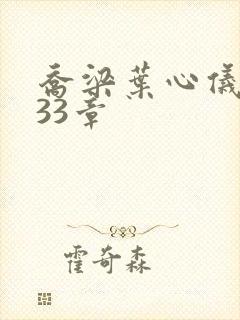 乔梁葉心儀
33章
霍奇森